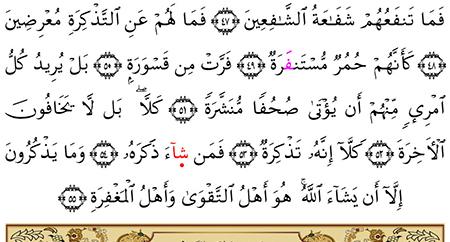 فَمَا تَنفَعُهُمْ شَفَٰعَةُ ٱلشَّٰفِعِينَ ٤٧ فَمَا لَهُمْ عَنِ ٱلتَّذْكِرَةِ مُعْرِضِينَ
٤٨ كَأَنَّهُمْ حُمُرٌ مُّسْتَنفَرَةٌ ٤٩ فَرَّتْ مِن قَسْوَرَةٍۭ ٥٠ بَلْ يُرِيدُ كُلُّ
ٱمْرِئٍ مِّنْهُمْ أَن يُؤْتَىٰ صُحُفًا مُّنَشَّرَةً ٥١ كَلَّاۖ بَل لَّا يَخَافُونَ
ٱلْأَخِرَةَ ٥٢ كَلَّا إِنَّهُۥ تَذْكِرَةٌ ٥٣ فَمَن شَآءَ ذَكَرَهُۥ ٥٤ وَمَا يَذْكُرُونَ
إِلَّآ أَن يَشَآءَ ٱللَّهُۚ هُوَ أَهْلُ ٱلتَّقْوَىٰ وَأَهْلُ ٱلْمَغْفِرَةِ ٥٥